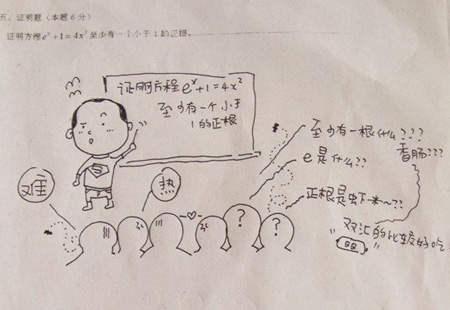 五、证明题(本题6分)
证明方程eˣ+1=4x²至少有一个小于1的正根。
证明方程eˣ+1=4x²
至少有一个小于
1的正根
至少有一根什么???
香肠???
e是什么??
正根是虫下米~??
双汇的比较好吃
难
热
?
?